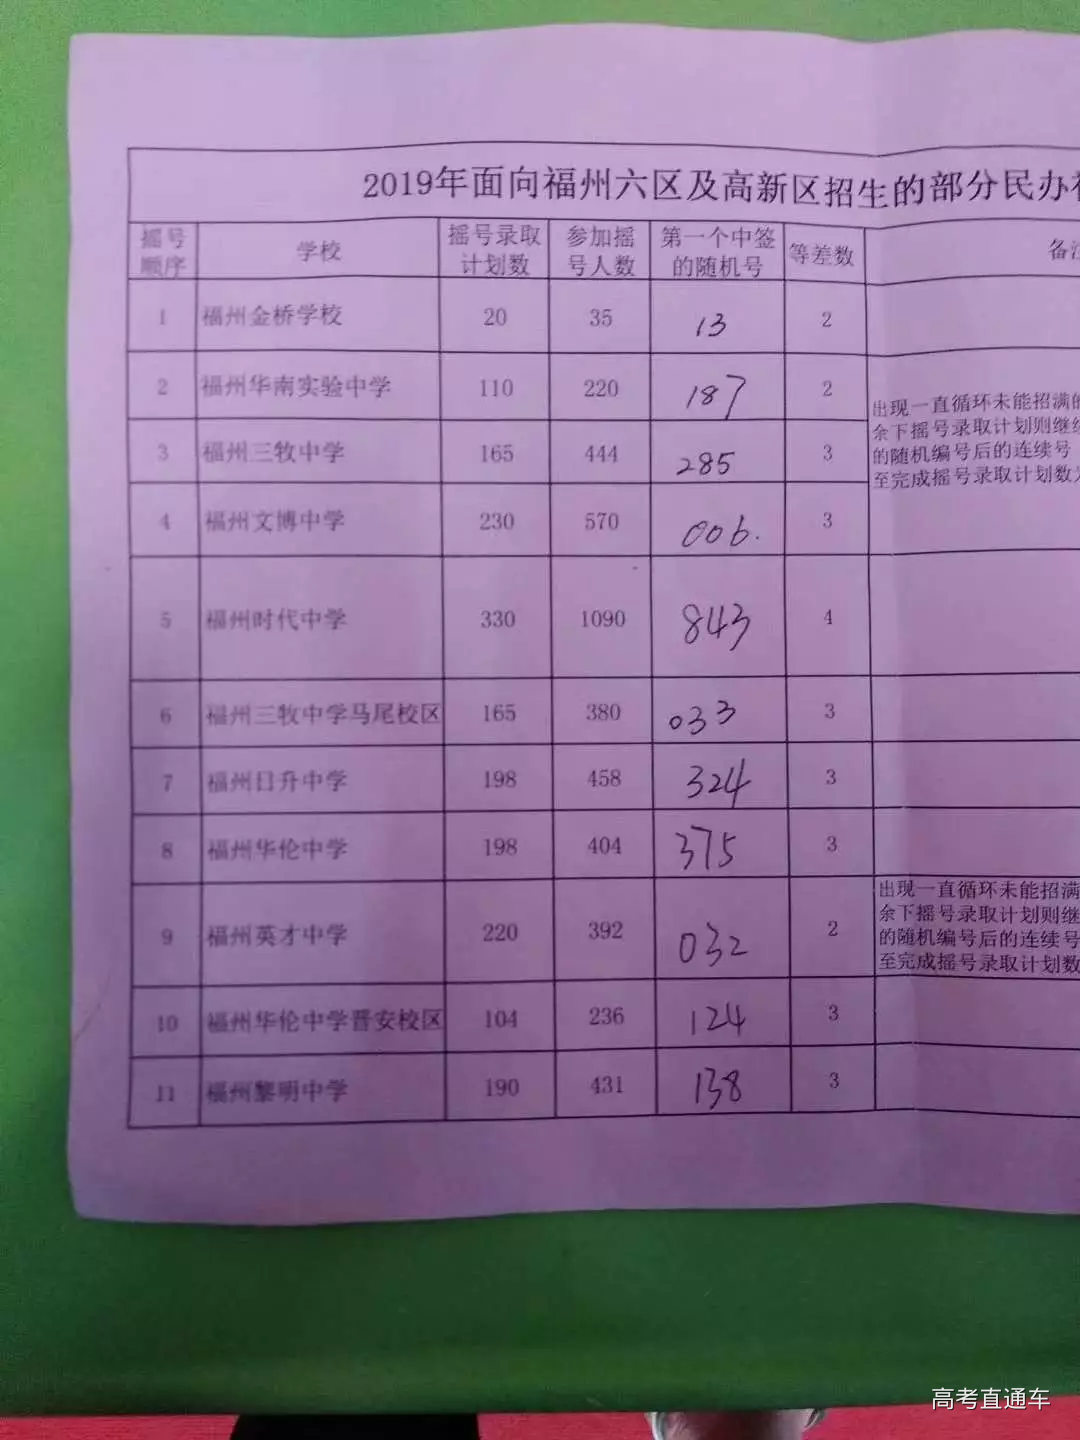 2019年面向福州六区及高新区招生的部分民办
摇号顺序 学校 摇号录取计划数 参加摇号人数 第一个中签的随机号 等差数 备注
1 福州金桥学校 20 35 13 2
2 福州华南实验中学 110 220 187 2
3 福州三牧中学 165 444 285 3
出现一直循环未能招满的
余下摇号录取计划则继续
的随机编号后的连续号
至完成摇号录取计划数为
4 福州文博中学 230 570 006. 3
5 福州时代中学 330 1090 843 4
6 福州三牧中学马尾校区 165 380 033 3
7 福州日升中学 198 458 324 3
8 福州华伦中学 198 404 375 3
9 福州英才中学 220 392 032 2
出现一直循环未能招满
余下摇号录取计划则继
的随机编号后的连续号
至完成摇号录取计划数
10 福州华伦中学晋安校区 104 236 124 3
11 福州黎明中学 190 431 138 3
高考直通车